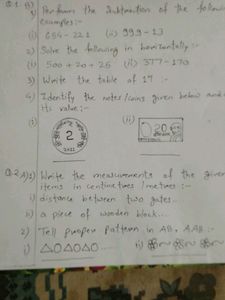 Q.1 B) 1) Perform the Subtraction of the followi
examples:-
i) 654 - 221 (ii) 999 - 13
2) Solve the following in horizontally:-
i) 500 + 20 + 26 (ii) 377 - 170
3) Write the table of 17 :-
4) Identify the notes / coins given below and
its value;-
(i) (ii)
2 20
2022
Q.2 A) 1) Write the measurements of the given
items in centimetres / metres :-
i) distance between two gates...
ii) a piece of wooden block...
2) Tell proper pattern in AB, AAB :-
i) ii)